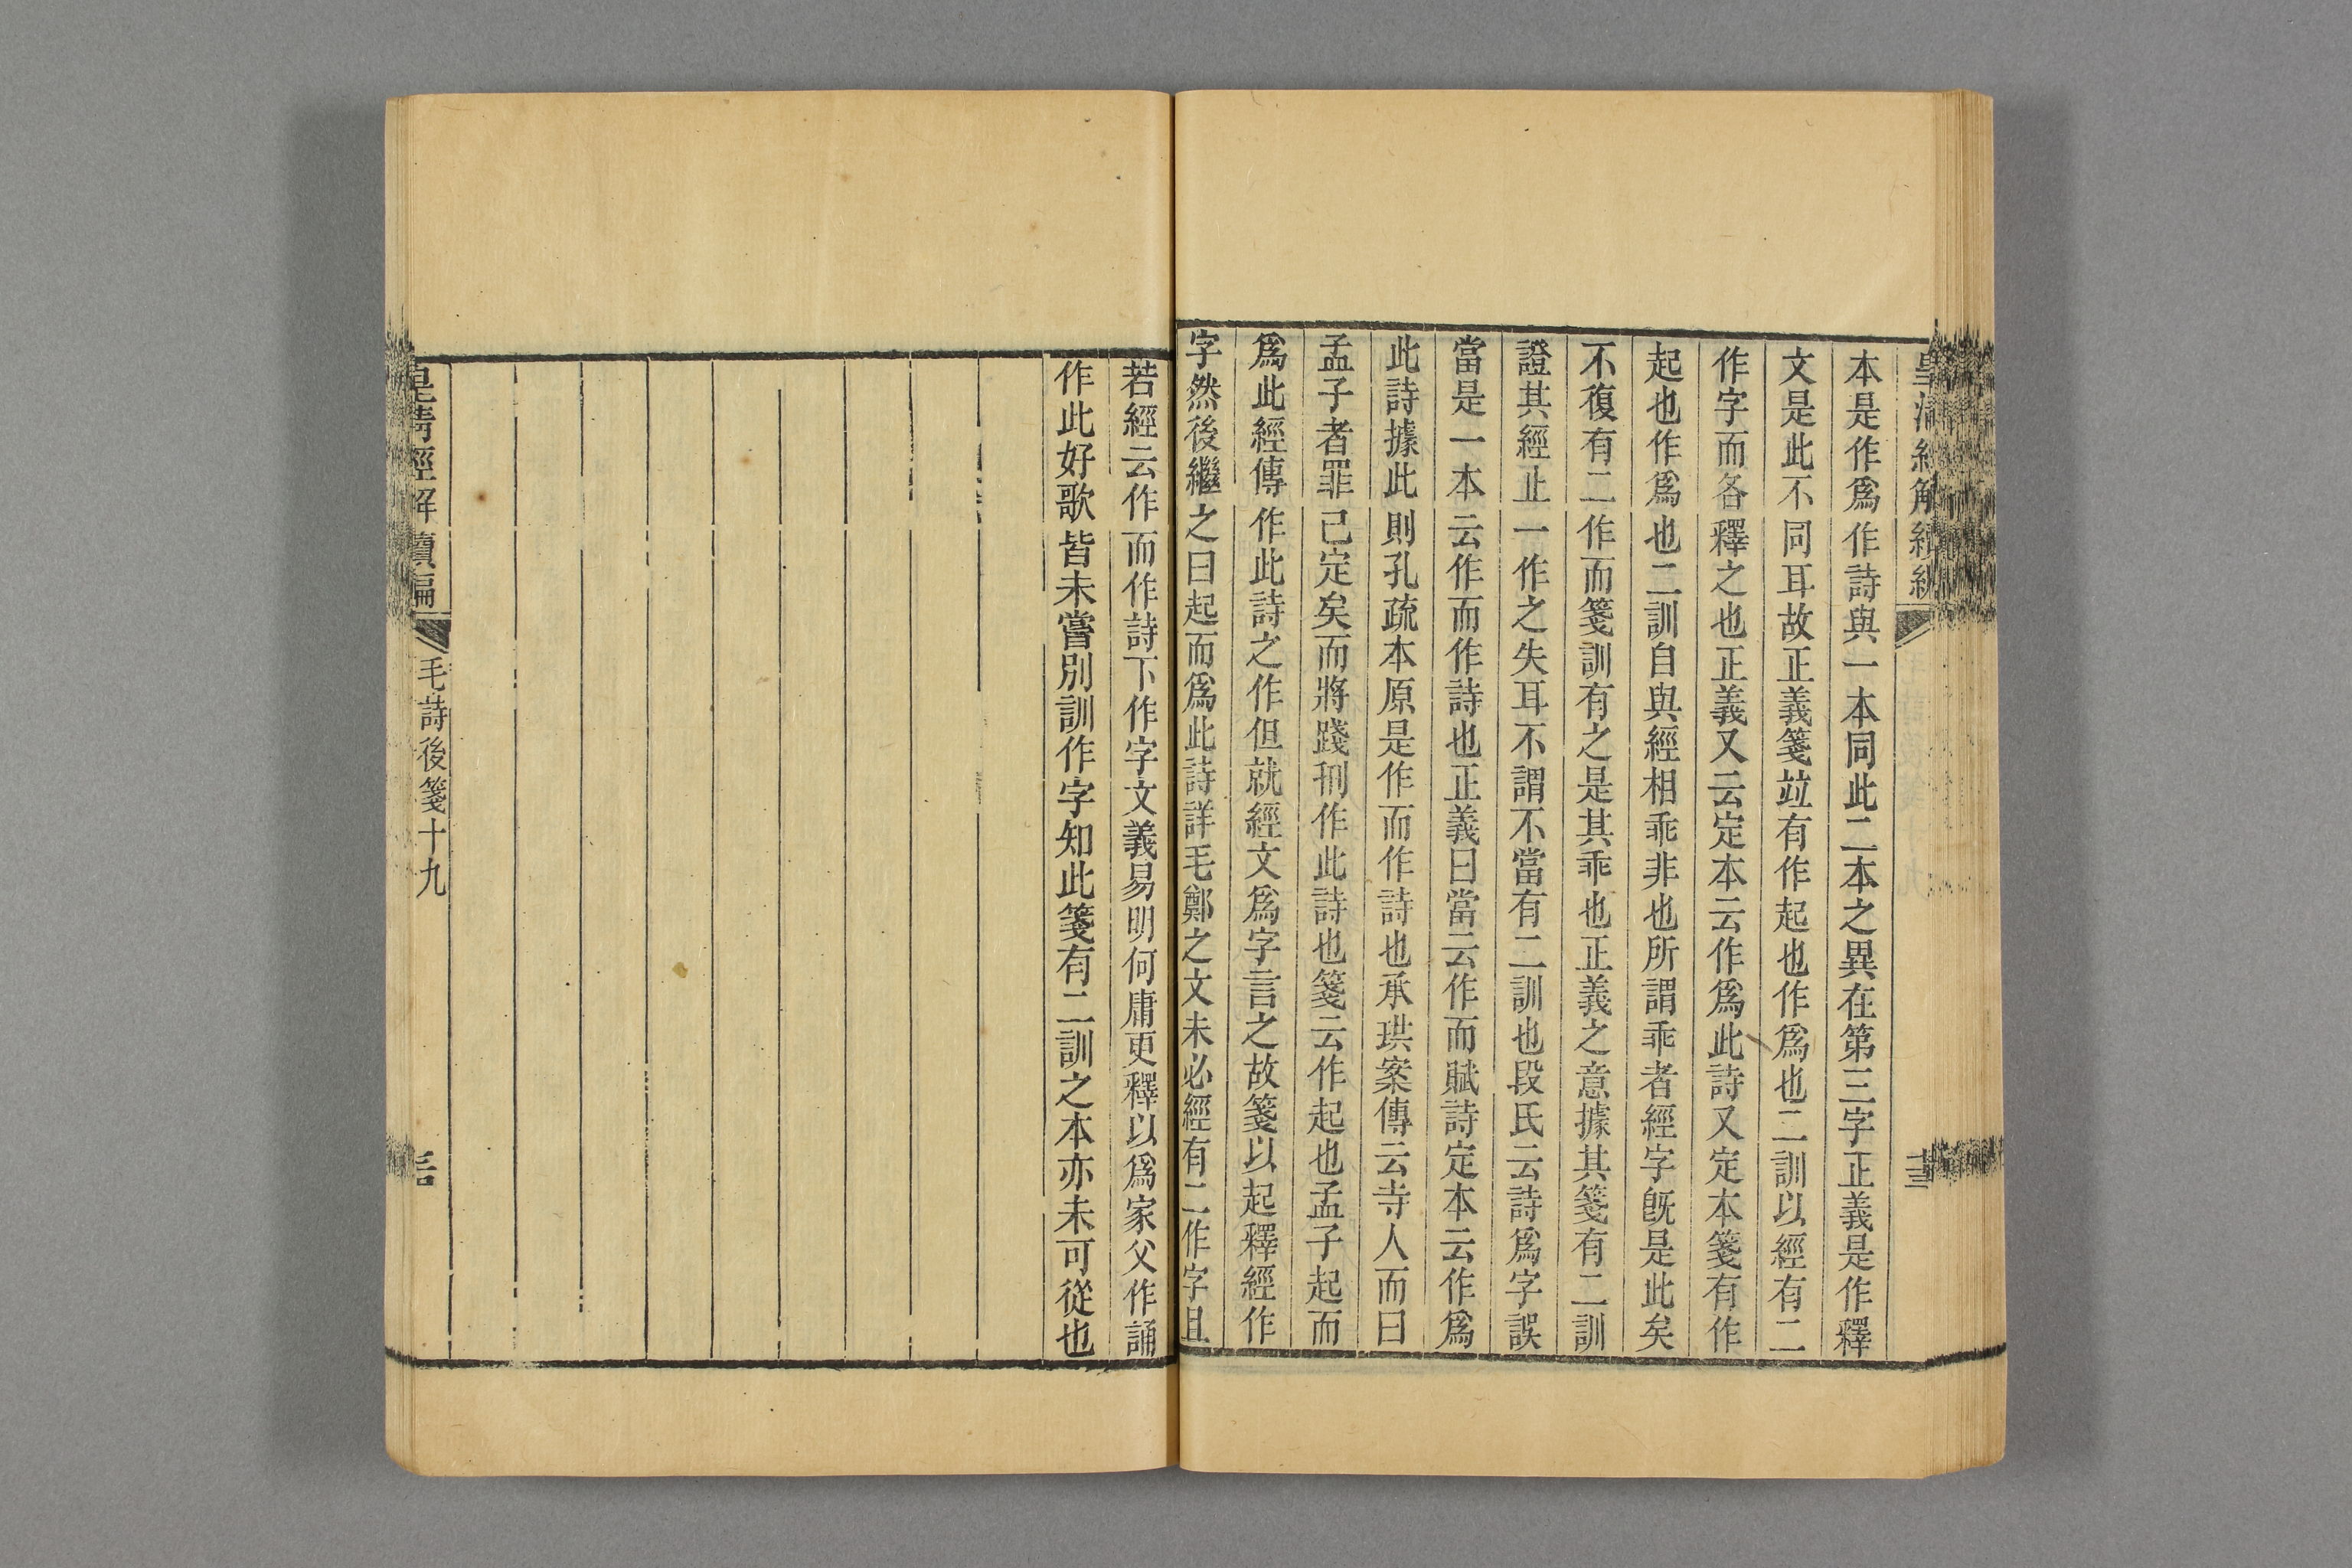 本是作爲作詩與一本同此二本之異在第三字正義是作釋
文是此不同耳故正義箋竝有作起也作爲也二訓以經有二
作字而各釋之也正義又云定本云作爲此詩又定本箋有作
起也作爲也二訓自與經相乖非也所謂乖者經字旣是此矣
不復有二作而箋訓有之是其乖也正義之意據其箋有二訓
證其經止一作之失耳不謂不當有二訓也段氏云詩爲字誤
當是一本云作而作詩也正義曰當云作而賦詩定本云作爲
此詩據此則孔疏本原是作而作詩也承珙案傳云寺人而曰
孟子者罪已定矣而將踐刑作此詩也箋云作起也孟子起而
爲此經傳作此詩之作但就經文爲字言之故箋以起釋經作
字然後繼之曰起而爲此詩詳毛鄭之文未必經有二作字且
若經云作而作詩下作字文義易明何庸更釋以爲家父作誦
作此好歌皆未嘗別訓作字知此箋有二訓之本亦未可從也
皇清經解續編
毛詩後箋十九